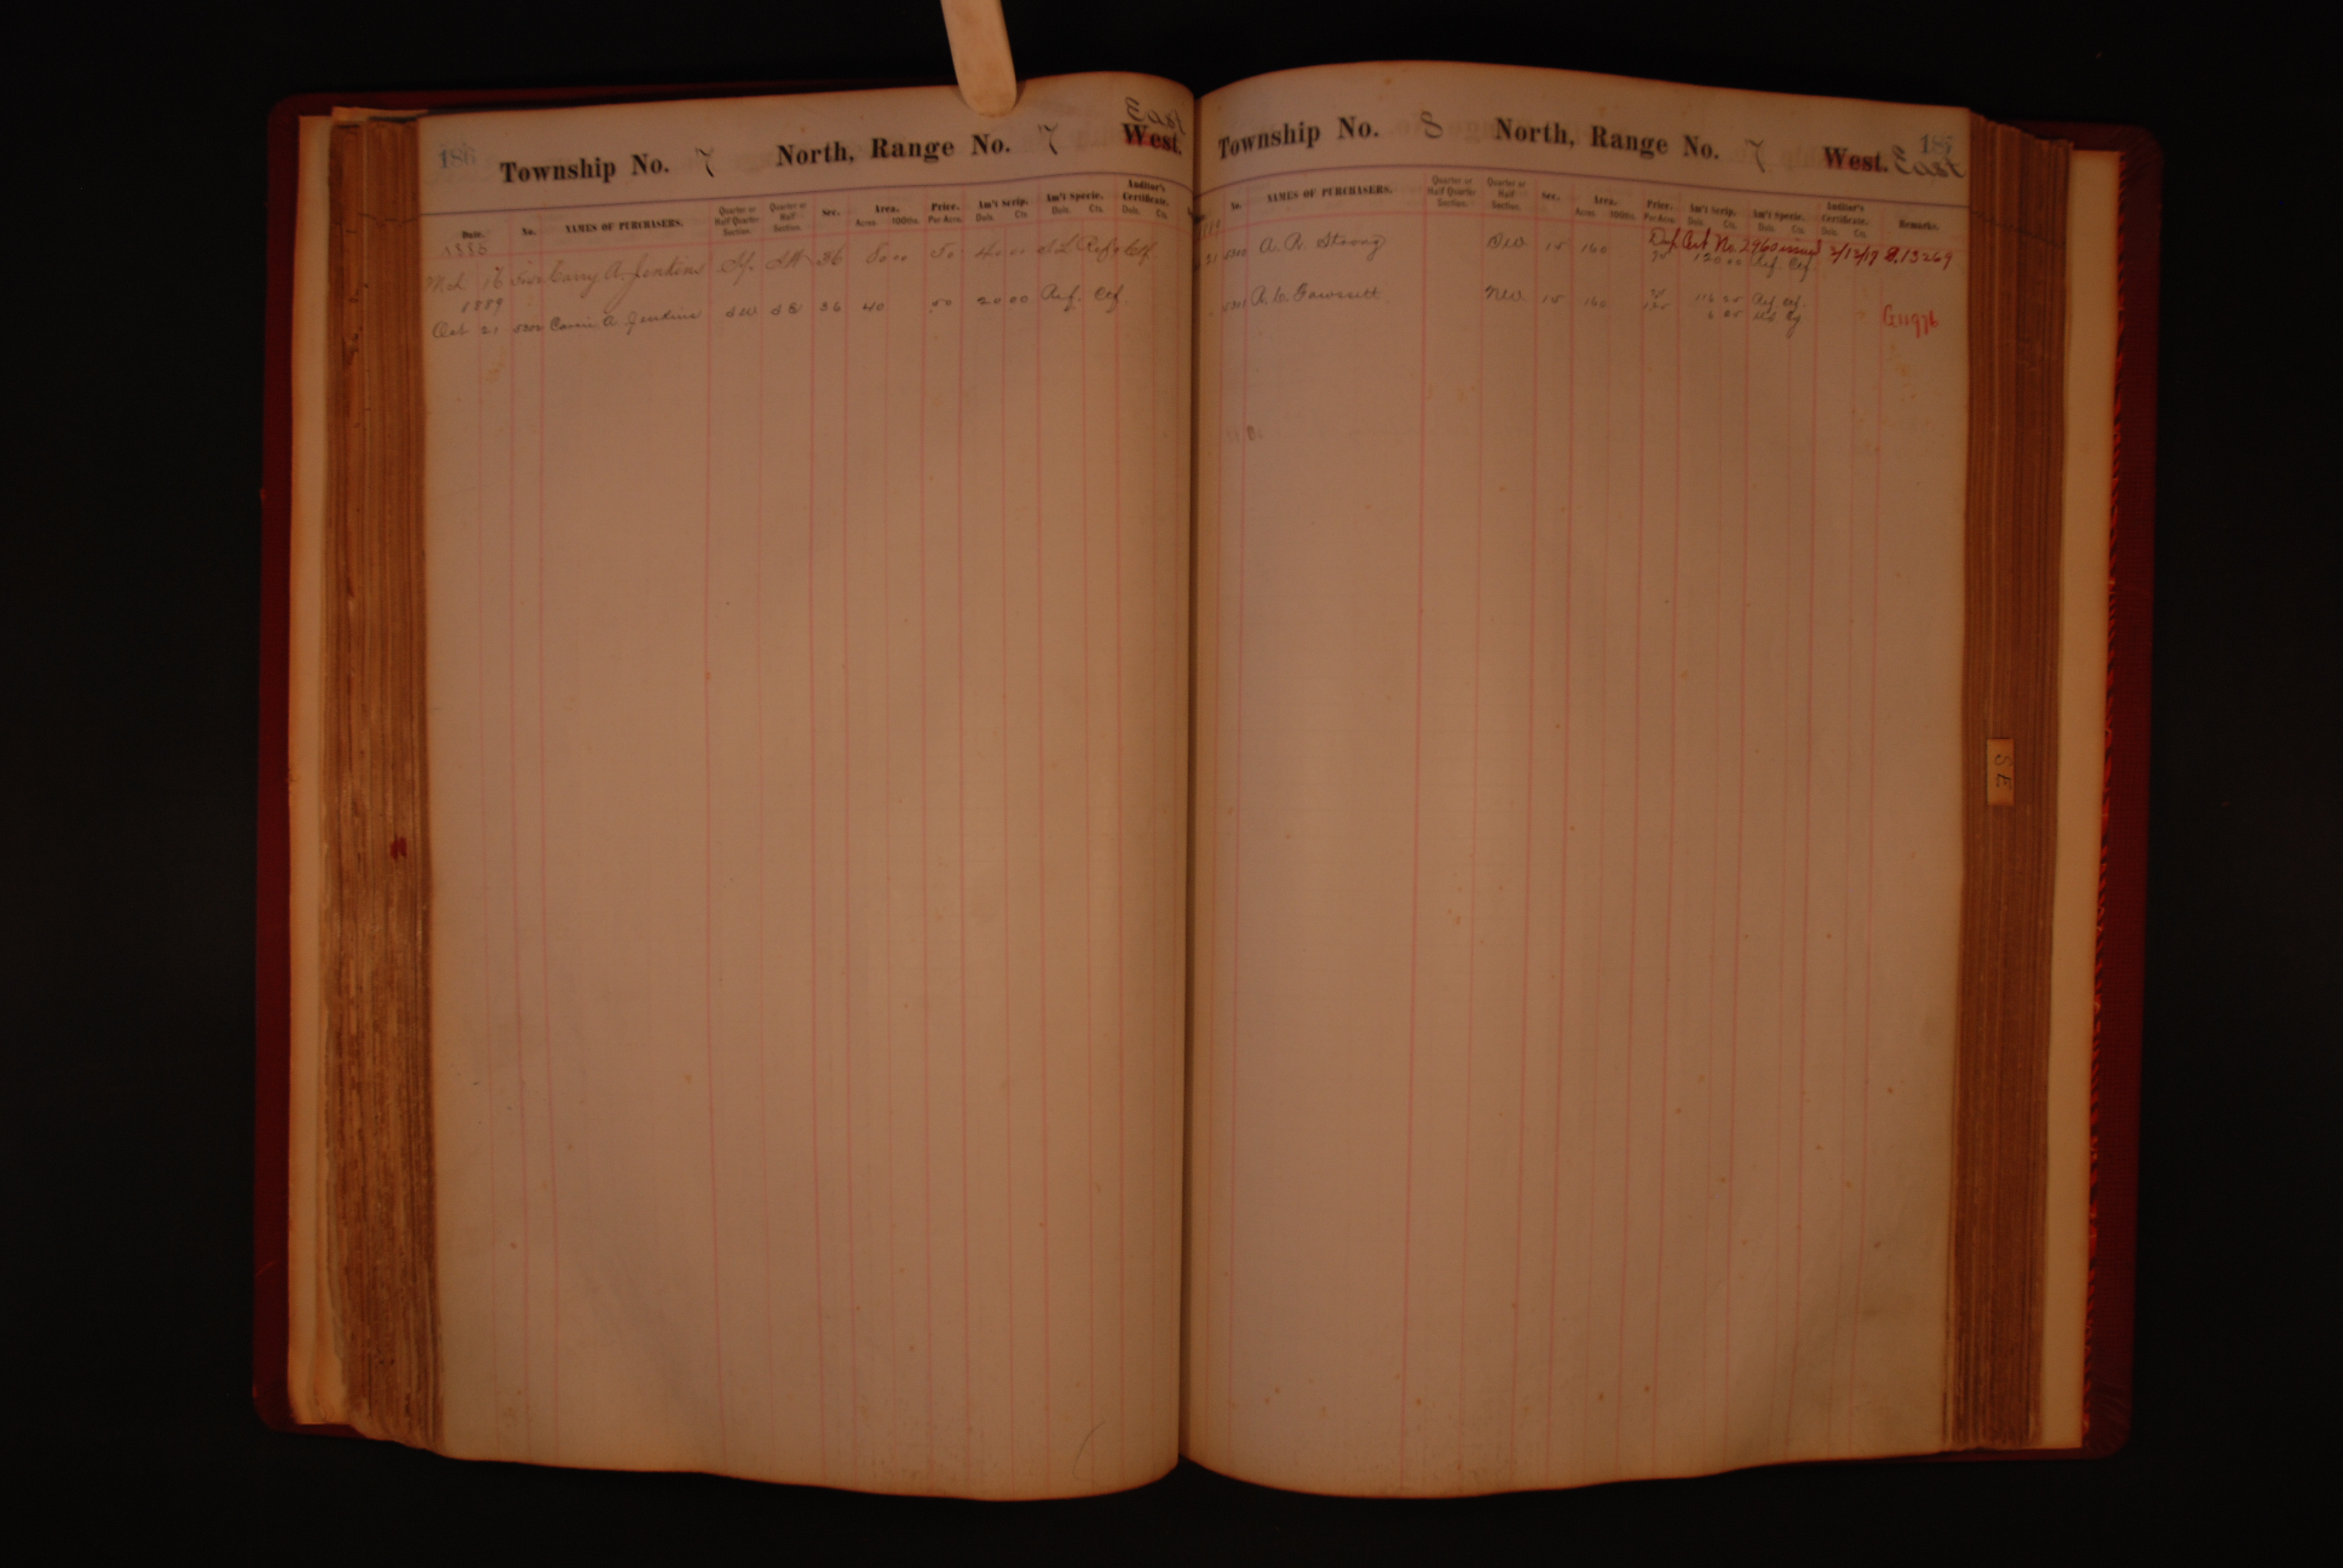 186
Township No. 7 North, Range No. 7 West. East
Date. No. NAMES OF PURCHASERS. Quarter or Half Quarter Section. Quarter or Half Section. Sec. Area. Acres 100ths. Price. Per Acre. Am't Scrip. Dols. Cts. Am't Specie. Dols. Cts. Auditor's Certificate. Dols. Cts.
Mch 16 Carry A. Jenkins 36 80 00 50 40 00
1889
Oct 21 5302 Carrie A Jenkins SW SE 36 40 50 20 00 Ref. Cef.
Township No. 8 North, Range No. 7 West. East
No. NAMES OF PURCHASERS. Quarter or Half Quarter Section. Quarter or Half Section. Sec. Area. Acres 100ths. Price. Per Acre. Am't Scrip. Dols. Cts. Am't Specie. Dols. Cts. Auditor's Certificate. Dols. Cts. Remarks.
Dup. Cert No. 2960 issued 2/12/17
21 5300 A. R. Strong SW 15 160 75 120 00 Ref. Cef. 13269
5301 NW 15 160 Ref. Cef.
G11976
SE